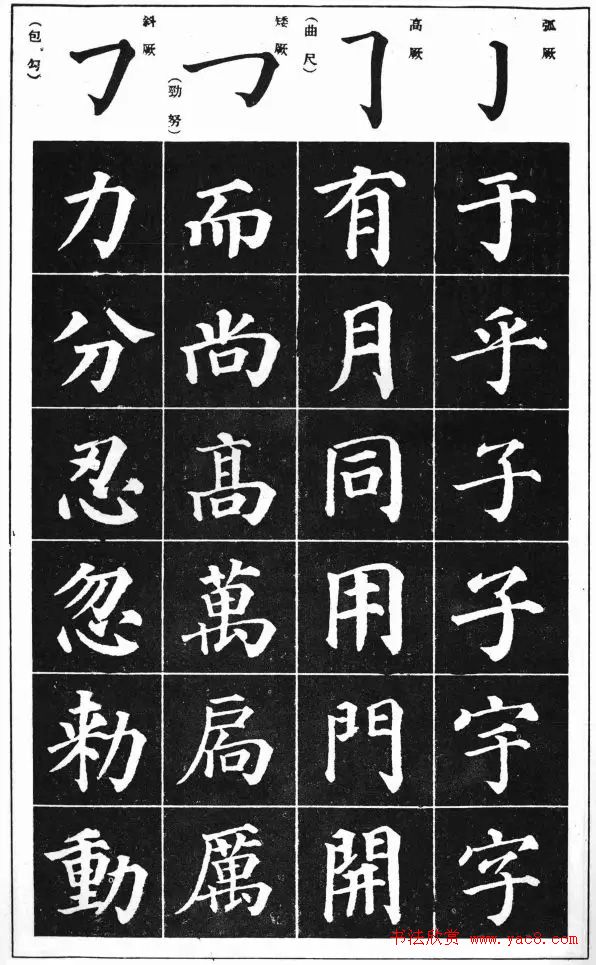 弧厥
于乎子子宇字
高厥
(曲尺)
有月同用門開
矮厥
(勁努)
而尚高萬扄厲
斜厥
(包勾)
力分忍忽勅動
书法欣赏 www.yac8.com